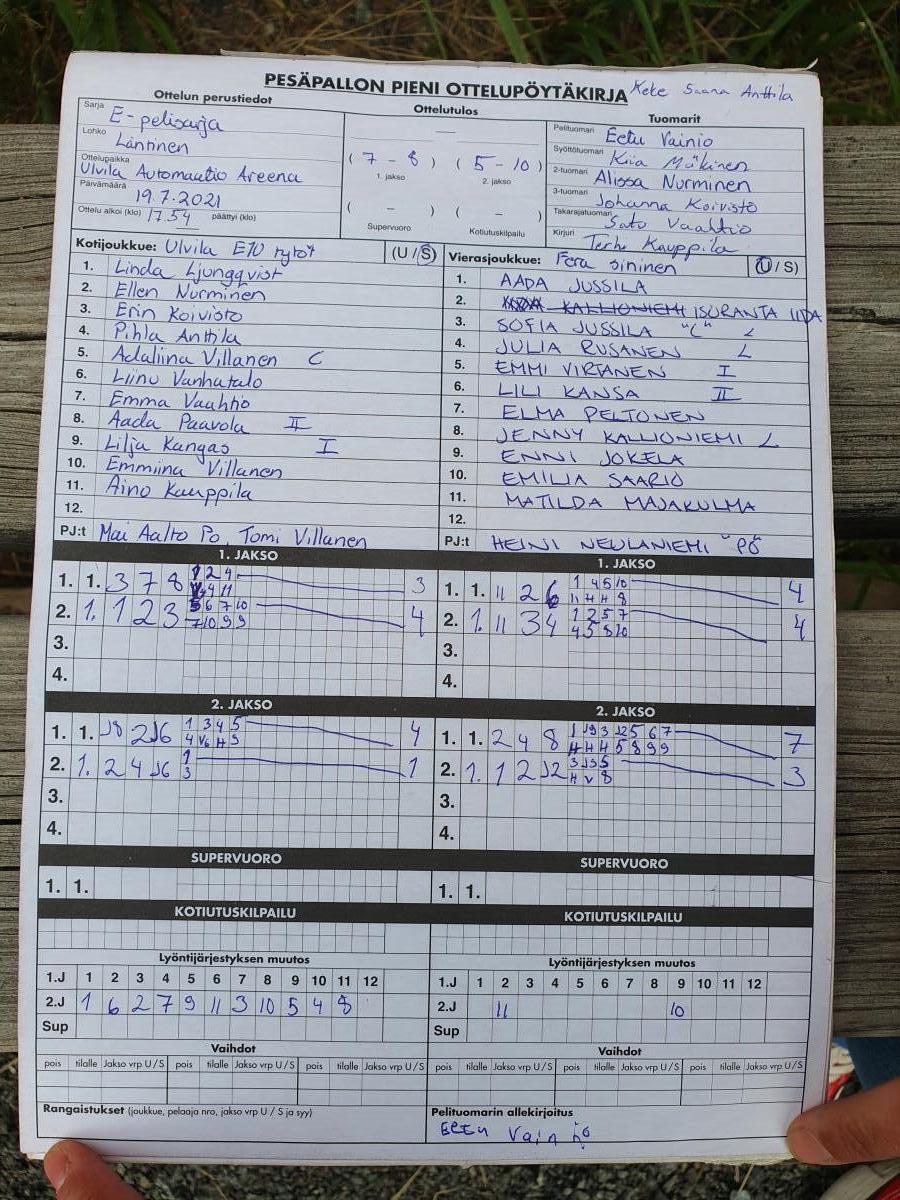 PESÄPALLON PIENI OTTELUPÖYTÄKIRJA Keke Saana Anttila
Ottelun perustiedot
Sarja E-pelisarja
Lohko Läntinen
Ottelupaikka Ulvila Automaatio Areena
Päivämäärä 19.7.2021
Ottelu alkoi (klo) 17.54 päättyi (klo)
Ottelutulos
( 7 - 8 ) ( 5 - 10 )
1. jakso 2. jakso
( - ) ( - )
Supervuoro Kotiutuskilpailu
Tuomarit
Pelituomari Eetu Vainio
Syöttötuomari Kiia Mäkinen
2-tuomari Alissa Nurminen
3-tuomari Johanna Koivisto
Takarajatuomari Satu Vaahtio
Kirjuri Terhi Kauppila
Kotijoukkue: Ulvila E10 tytöt (U / S)
1. Linda Ljungqvist
2. Ellen Nurminen
3. Erin Koivisto
4. Pihla Anttila
5. Adaliina Villanen C
6. Liinu Vanhatalo
7. Emma Vaahtio
8. Aada Paavola II
9. Lilja Kangas I
10. Emmiina Villanen
11. Aino Kauppila
12.
PJ:t Mai Aalto Po, Tomi Villanen
Vierasjoukkue: Fera sininen (U / S)
1. AADA JUSSILA
2. KALLIONIEMI ISORANTA IIDA
3. SOFIA JUSSILA "C" L
4. JULIA RUSANEN L
5. EMMI VIRTANEN I
6. LILI KANSA II
7. ELMA PELTONEN
8. JENNY KALLIONIEMI L
9. ENNI JOKELA
10. EMILIA SAARIO
11. MATILDA MAJAKULMA
12.
PJ:t HEINI NEULANIEMI "PÖ
1. JAKSO
1. 1. 3 7 8 1 2 4 3
4 11
2. 1. 1 2 3 5 6 7 10 4
7 10 9 9
3.
4.
1. JAKSO
1. 1. 11 2 6 1 4 5 10 4
11 H H 8
2. 1. 11 3 4 1 2 5 7 4
4 5 8 10
3.
4.
2. JAKSO
1. 1. J8 2 J6 1 3 4 5 4
4 V6 H 9
2. 1. 2 4 J6 1 1
3
3.
4.
2. JAKSO
1. 1. 2 4 8 1 J9 3 J2 5 6 7 7
H H H 5 8 9 9
2. 1. 1 2 J2 3 J3 5 3
H V 8
3.
4.
SUPERVUORO
1. 1.
SUPERVUORO
1. 1.
KOTIUTUSKILPAILU
KOTIUTUSKILPAILU
Lyöntijärjestyksen muutos
1.J 1 2 3 4 5 6 7 8 9 10 11 12
2.J 1 6 2 7 9 11 3 10 5 4 8
Sup
Lyöntijärjestyksen muutos
1.J 1 2 3 4 5 6 7 8 9 10 11 12
2.J 11 10
Sup
Vaihdot
pois tilalle Jakso vrp U / S pois tilalle Jakso vrp U / S pois tilalle Jakso vrp U / S
Vaihdot
pois tilalle Jakso vrp U / S pois tilalle Jakso vrp U / S pois tilalle Jakso vrp U / S
Rangaistukset (joukkue, pelaaja nro, jakso vrp U / S ja syy)
Pelituomarin allekirjoitus
Eetu Vainio